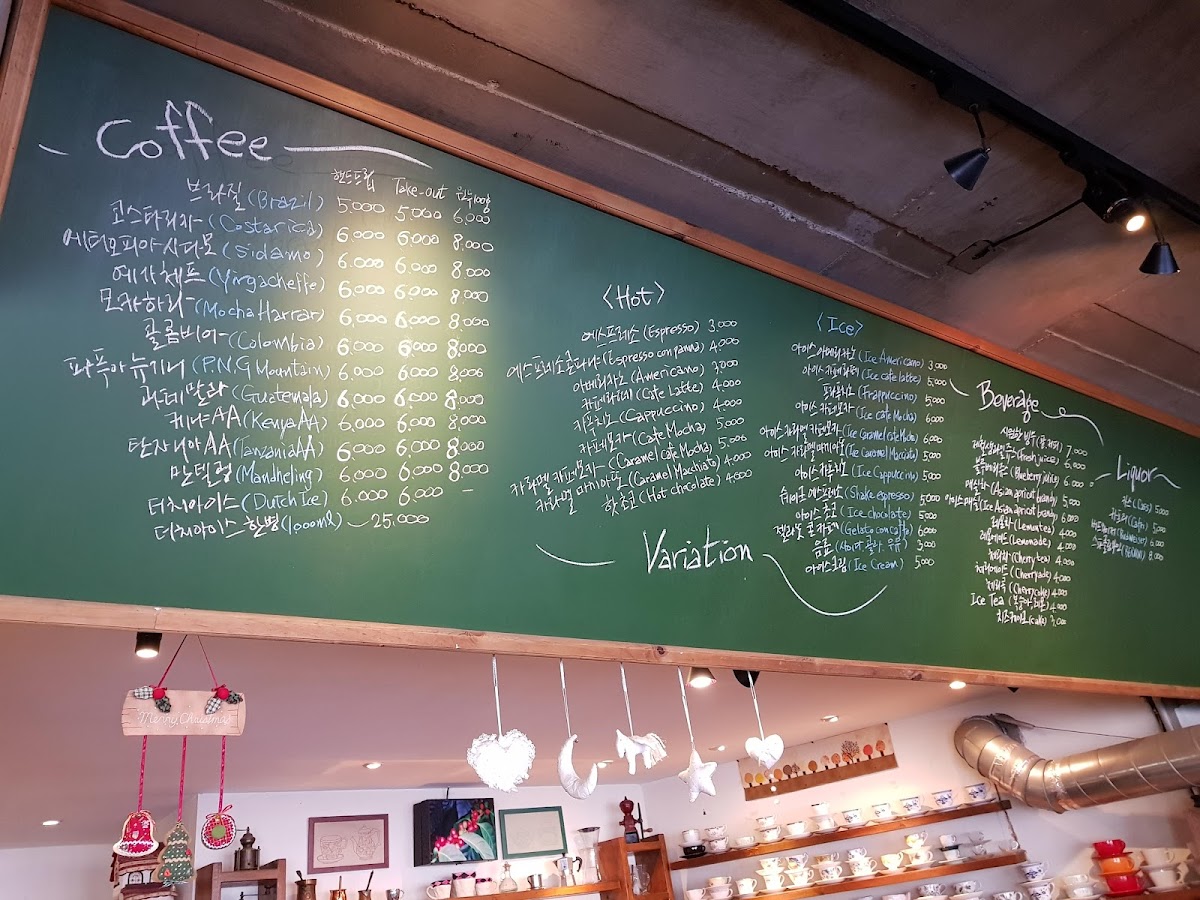 Coffee
핸드드립 Take-out 원두100g
브라질 (Brazil) 5,000 5,000 6,000
코스타리카 (Costarica) 6,000 6,000 8,000
에티오피아 시다모 (Sidamo) 6,000 6,000 8,000
예가체프 (Yirgacheffe) 6,000 6,000 8,000
모카하라 (Mocha Harrar) 6,000 6,000 8,000
콜롬비아 (Colombia) 6,000 6,000 8,000
파푸아 뉴기니 (P.N.G Mountain) 6,000 6,000 8,000
과테말라 (Guatemala) 6,000 6,000 8,000
케냐AA (Kenya AA) 6,000 6,000 8,000
탄자니아AA (Tanzania AA) 6,000 6,000 8,000
만델링 (Mandheling) 6,000 6,000 8,000
더치아이스 (Dutch Ice) 6,000 6,000 -
더치아이스 한병 (1,000ml) - 25,000
<Hot>
에스프레소 (Espresso) 3,000
에스프레소콘파나 (Espresso con panna) 4,000
아메리카노 (Americano) 3,000
카페라떼 (Cafe Latte) 4,000
카푸치노 (Cappuccino) 4,000
카페모카 (Cafe Mocha) 5,000
카라멜 카페모카 (Caramel Cafe Mocha) 5,000
카라멜 마끼아또 (Caramel Macchiato) 5,000
핫 초코 (Hot chocolate) 4,000
Variation
<Ice>
아이스 아메리카노 (Ice Americano) 3,000
아이스 카페라떼 (Ice cafe latte) 5,000
(Frappuccino) 5,000
아이스 카페모카 (Ice cafe Mocha) 6,000
아이스 카라멜 카페모카 (Ice Caramel cafe Mocha) 6,000
아이스 카라멜 마끼아또 (Ice Caramel Macciato) 5,000
아이스 카푸치노 (Ice Cappuccino) 5,000
쉐이크 에스프레소 (Shake espresso) 5,000
아이스 초코 (Ice chocolate) 5,000
젤라또 콘 카페 (Gelato con caffe) 6,000
음료 (사이다, 콜라, 우유) 3,000
아이스크림 (Ice Cream) 5,000
Beverage
7,000
(Fresh juice) 6,000
(Blueberry juice) 6,000
(Asian apricot brandy) 5,000
(Ice Asian apricot brandy) 6,000
레몬차 (Lemon tea) 4,000
레몬에이드 (Lemonade) 4,000
체리차 (Cherry tea) 4,000
체리에이드 (Cherryade) 4,000
체리콕 (Cherry coke) 4,000
Ice Tea 4,000
치즈케이크 (cake) 3,000
Liquor
카스 (Cass) 5,000
5,000
(Budweiser) 6,000
8,000
Merry Christmas